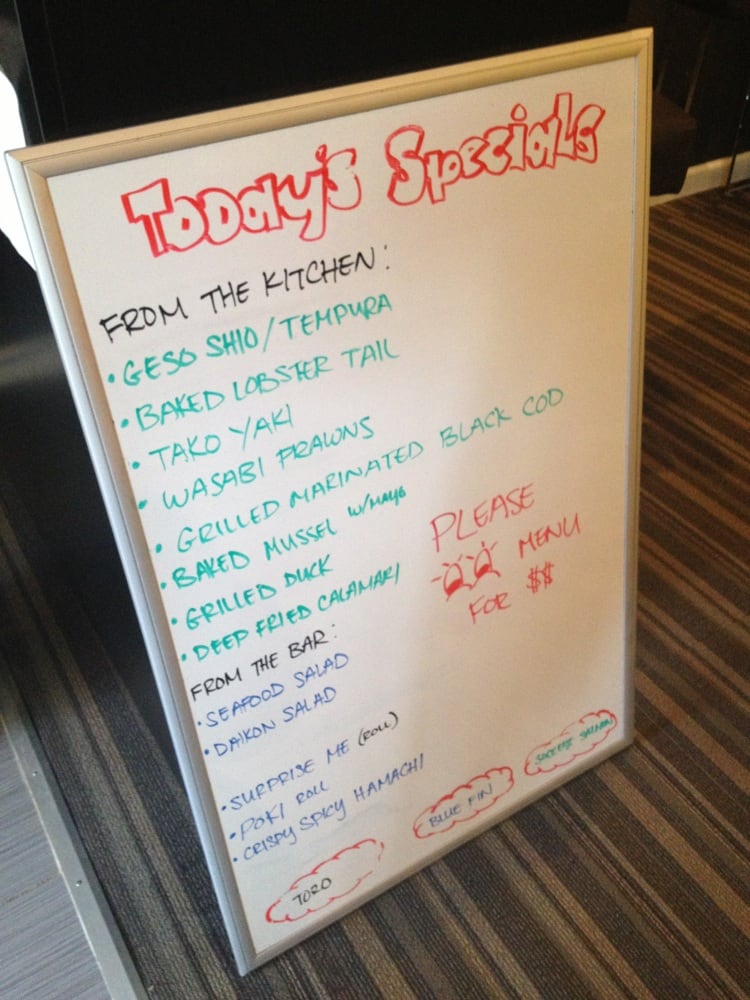 Today's Specials
FROM THE KITCHEN:
• GESO SHIO/TEMPURA
• BAKED LOBSTER TAIL
• TAKO YAKI
• WASABI PRAWNS
• GRILLED MARINATED BLACK COD
• BAKED MUSSEL w/MAYO
• GRILLED DUCK
• DEEP FRIED CALAMARI
PLEASE
MENU
FOR $$
FROM THE BAR:
• SEAFOOD SALAD
• DAIKON SALAD
• SURPRISE ME (ROLL)
• POKI ROLL
• CRISPY SPICY HAMACHI
TORO
BLUE FIN
SOCKEYE SALMON